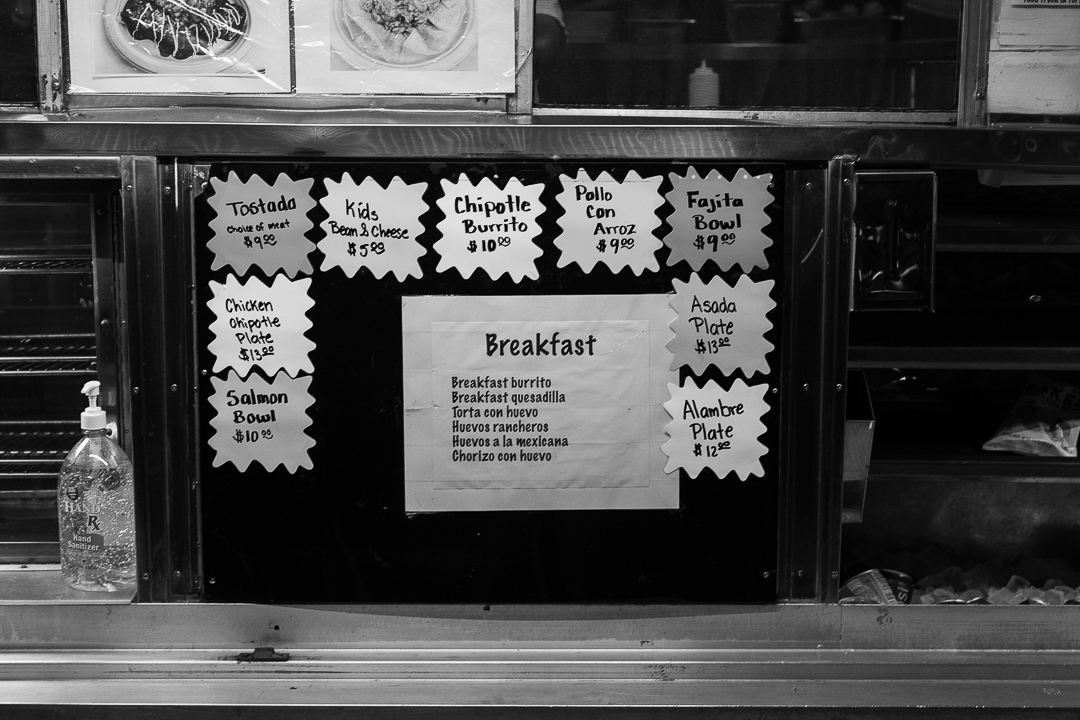 Tostada
choice of meat
$9.00
Kids
Bean & Cheese
$5.00
Chipotle
Burrito
$10.00
Pollo
Con
Arroz
$9.00
Fajita
Bowl
$9.00
Chicken
chipotle
Plate
$13.00
Asada
Plate
$13.00
Salmon
Bowl
$10.00
Alambre
Plate
$12.00
Breakfast
Breakfast burrito
Breakfast quesadilla
Torta con huevo
Huevos rancheros
Huevos a la mexicana
Chorizo con huevo
HAND
Rx
Hand
Sanitizer